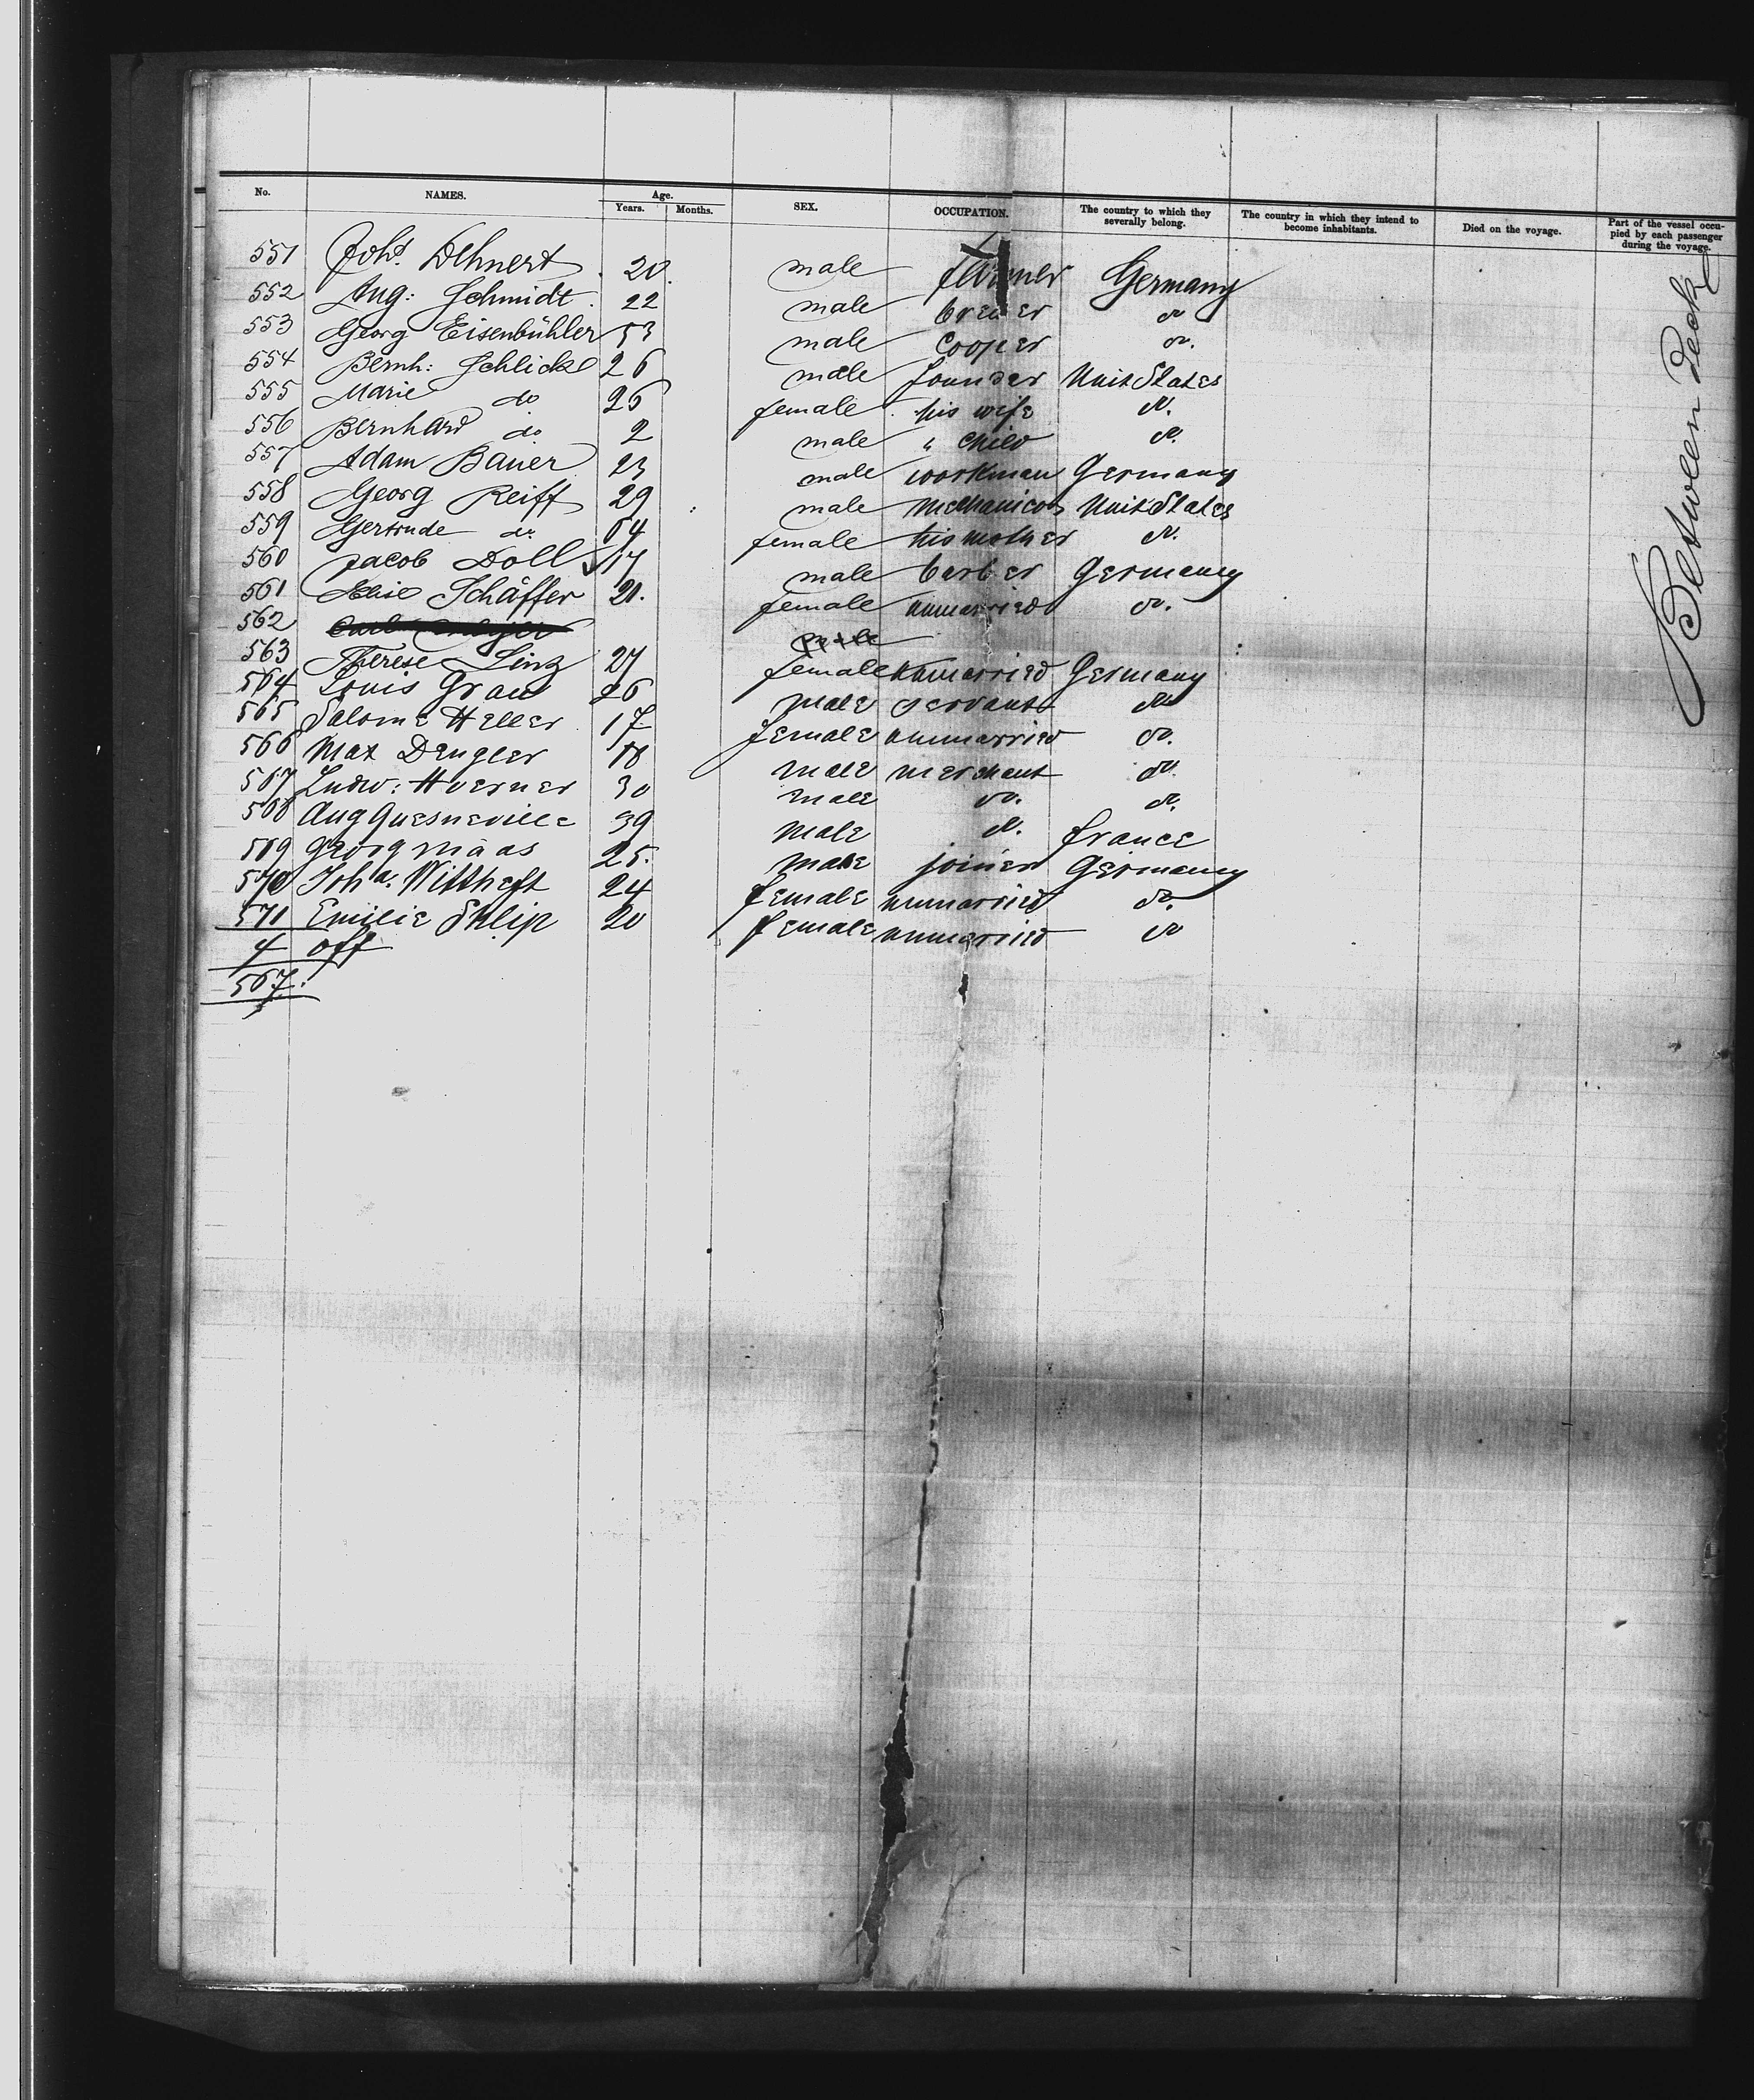 No. NAMES. Age. Years. Months. SEX. OCCUPATION. The country to which they severally belong. The country in which they intend to become inhabitants. Died on the voyage. Part of the vessel occupied by each passenger during the voyage.
551 Johs. Dehnert 20. male farmer Germany
552 Aug: Schmidt 22 male brewer do
553 Georg Eisenbühler 53 male Cooper do.
554 Bernh: Schlicke 26 male founder Unit States
555 Marie do 26 female his wife do.
556 Bernhard do 2 male " child do.
557 Adam Bauer 23 male workman Germany
558 Georg Reiff 29 male Mechanicos Unit States
559 Gertrude do. 64 female his mother do.
560 Jacob Doll 17 male barber Germany
561 Schäffer 21. female unmarried do.
562 male
563 Therese Linz 27 female unmarried Germany
564 Louis Grau 26 male servant do
565 Salome Heller 17 female unmarried do.
566 Max Dengler 18 male merchant do.
567 Ludw: Hoerner 30 male do. do.
568 Aug Quesneville 39 male do. france
569 Georg Maas 25. male joiner Germany
570 Joha. Wittheft 24 female unmarried do.
571 Emilie Philip 20 female unmarried do
4 off
567.
Between Decks